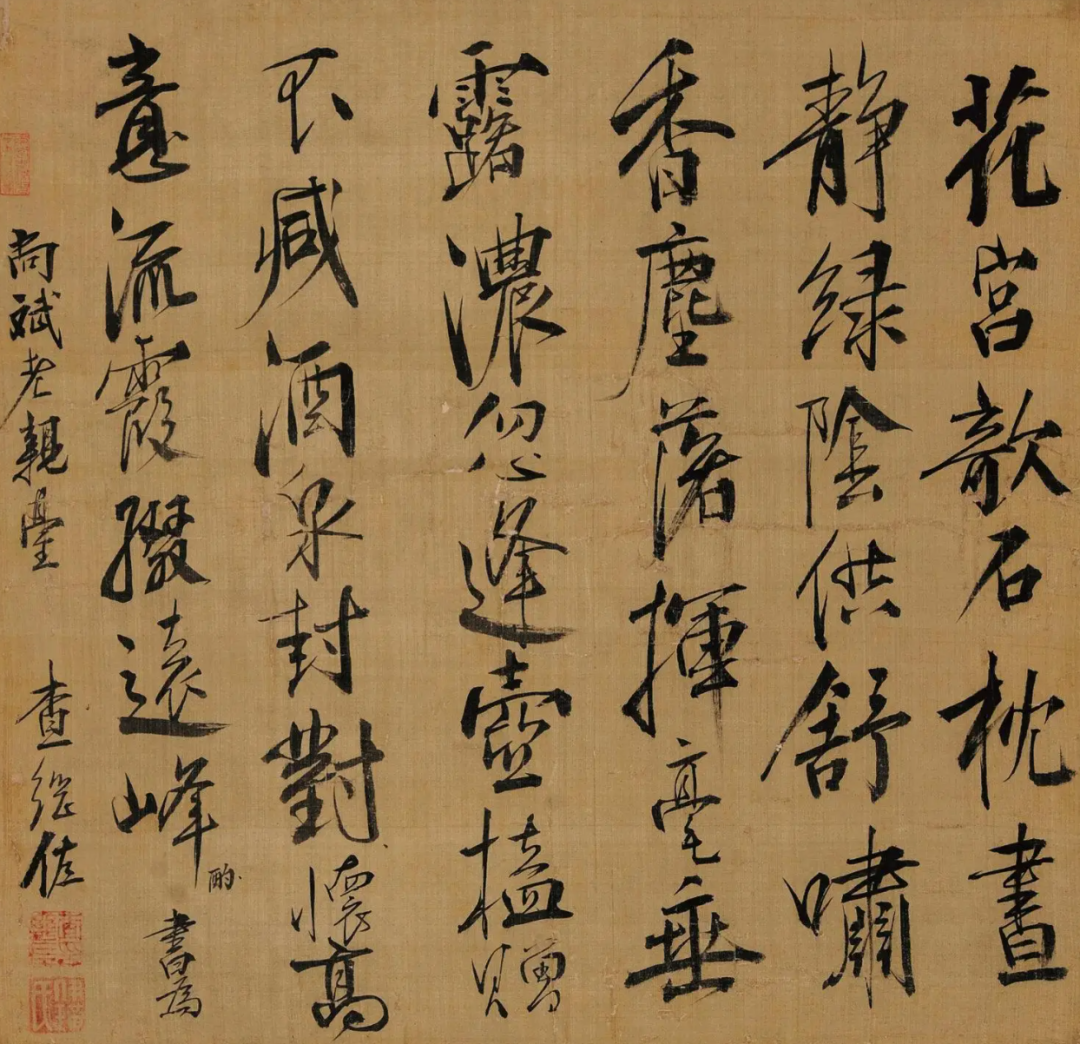 花宫欹石枕晝
靜緑陰供舒嘯
香塵落揮毫垂
露濃忽逢壺榼贈
不減酒泉封對懷高
意流霞綴遠峰酌
書為
尚斌老親臺
查繼佐